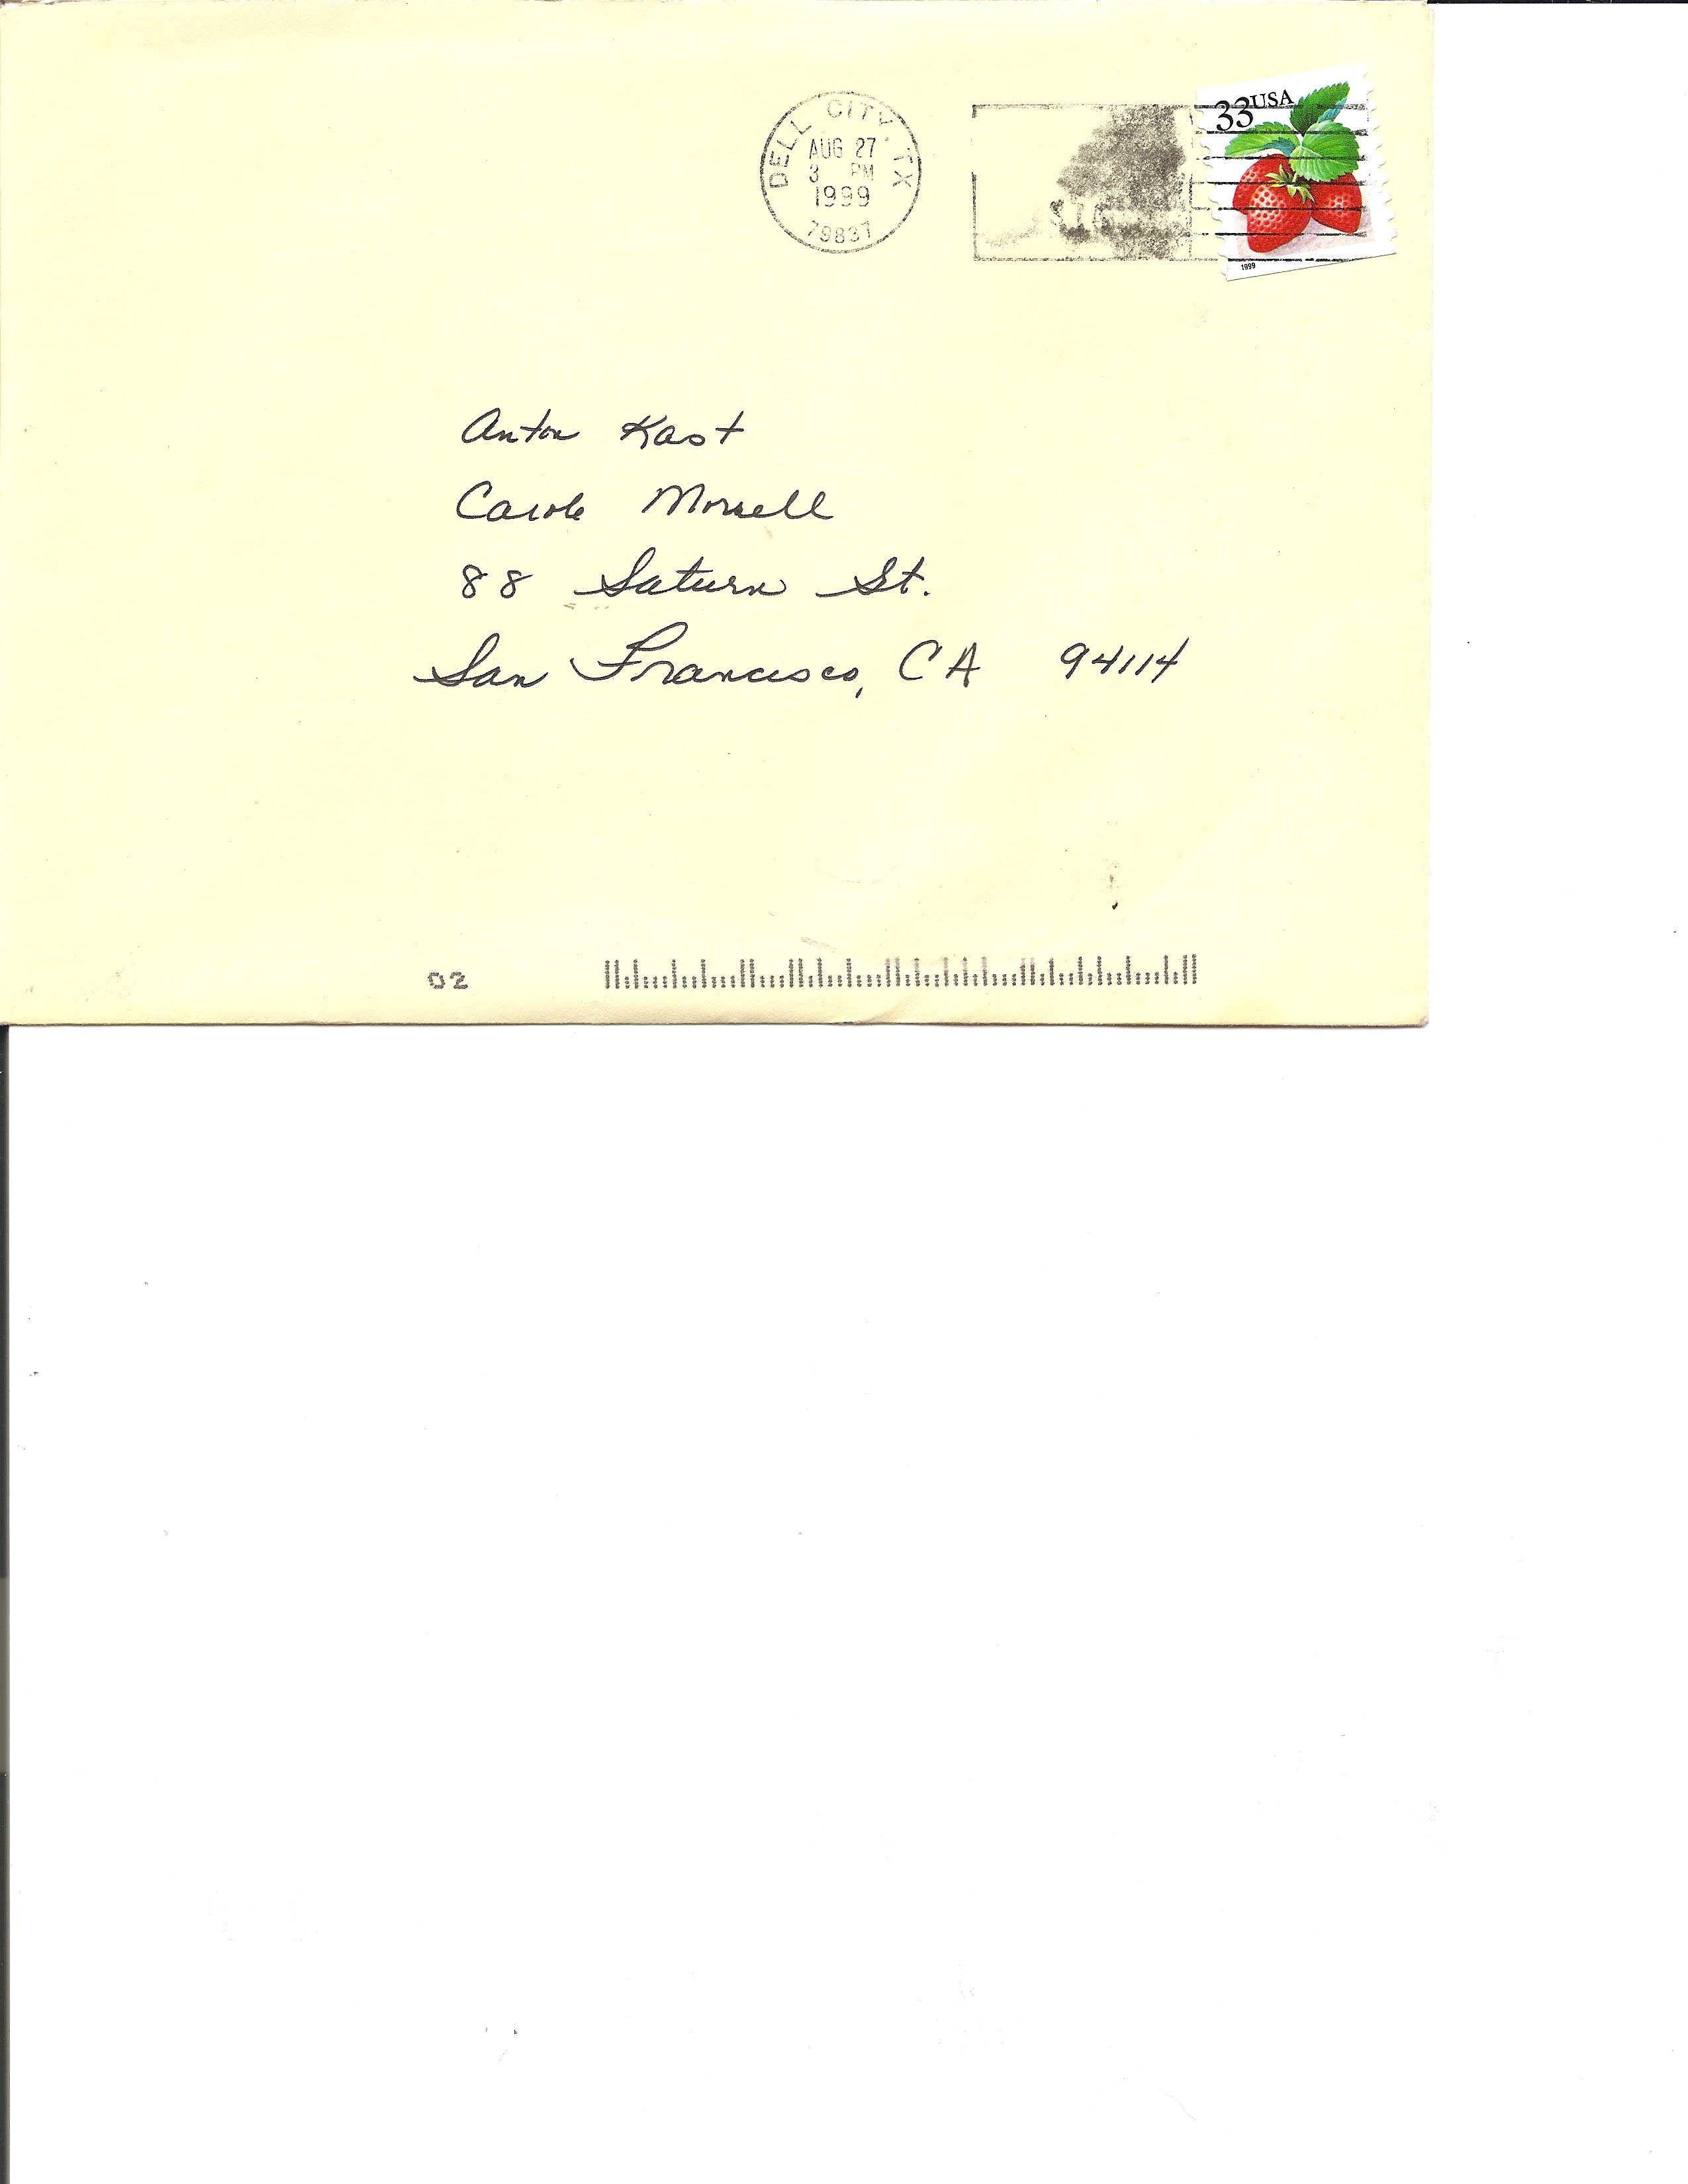 DELL CITY, TX
AUG 27
3 PM
1999
79837
33USA
1999
Anton Kast
Carole Morrell
88 Saturn St.
San Francisco, CA 94114
02